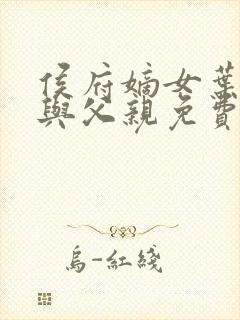 侯府嫡女葉
與父親免費
烏-紅綫